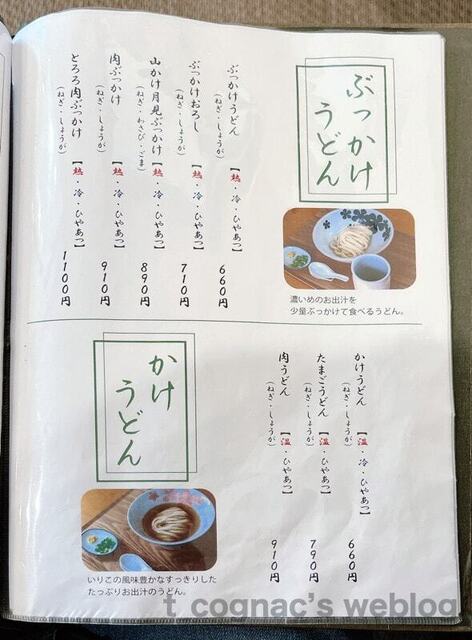 ぶっかけ
うどん
ぶっかけうどん【熱・冷・ひやあつ】660円
(ねぎ・しょうが)
ぶっかけおろし【熱・冷・ひやあつ】710円
(ねぎ・しょうが)
山かけ月見ぶっかけ【熱・冷・ひやあつ】890円
(ねぎ・わさび・ごま)
肉ぶっかけ【熱・冷・ひやあつ】910円
(ねぎ・しょうが)
とろろ肉ぶっかけ【熱・冷・ひやあつ】1100円
(ねぎ・しょうが)
濃いめのお出汁を
少量ぶっかけて食べるうどん。
かけうどん【温・冷・ひやあつ】660円
(ねぎ・しょうが)
たまごうどん【温・ひやあつ】790円
(ねぎ・しょうが)
肉うどん【温・ひやあつ】910円
(ねぎ・しょうが)
かけ
うどん
いりこの風味豊かなすっきりした
たっぷりお出汁のうどん。
t_cognac's weblog